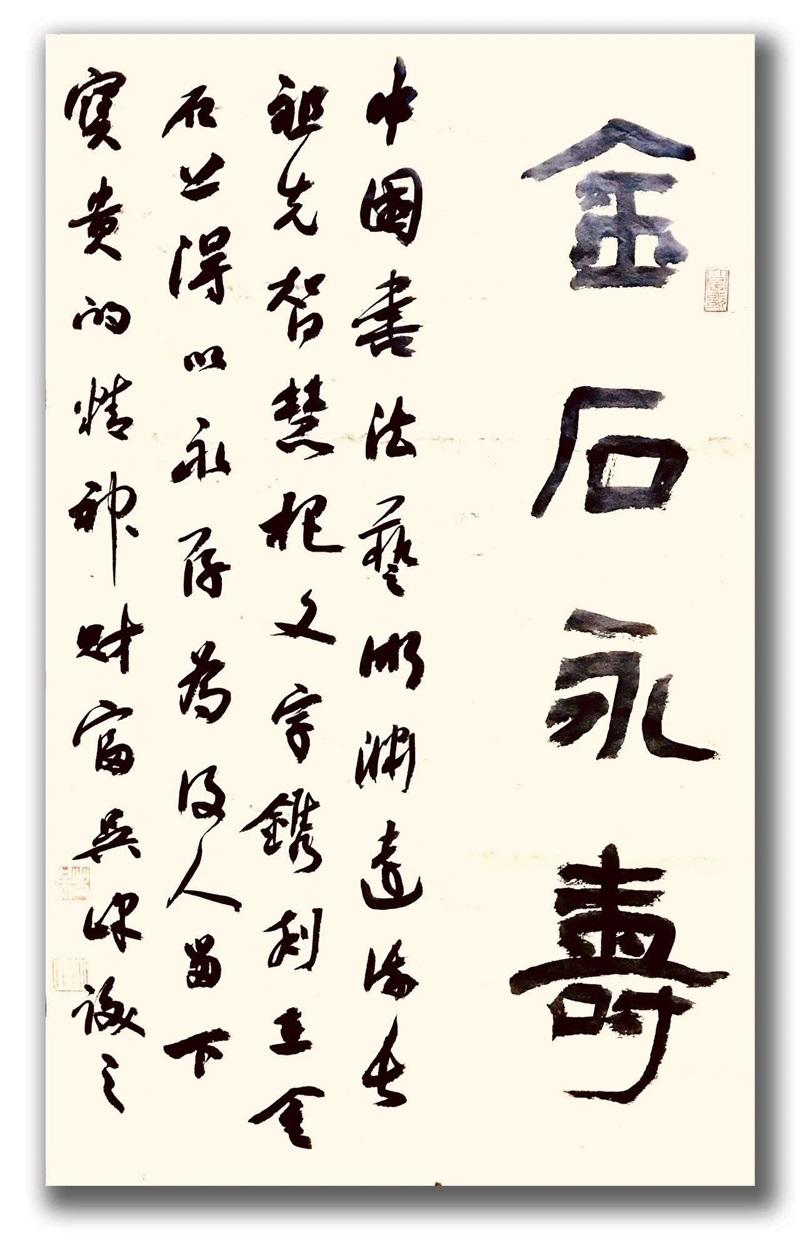 金石永壽
中國書法藝術淵遠流長
祖先智慧把文字鐫刻在金
石上得以永存為後人留下
寶貴的精神財富吳之